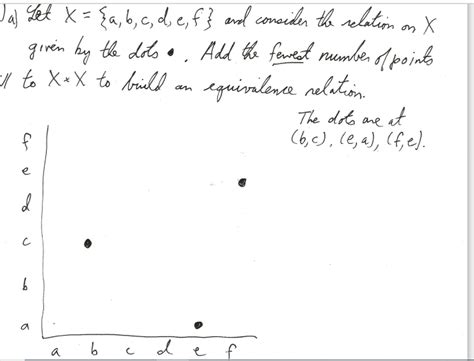 a) Let X = {a, b, c, d, e, f} and consider the relation on X
given by the dots •. Add the fewest number of points
to X × X to build an equivalence relation.
The dots are at
(b, c), (e, a), (f, e).
f
e
d
c
b
a
a b c d e f